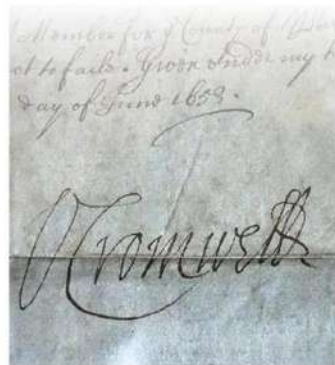 Member for ye County of
not to faile. Given under my
day of June 1653.
O Cromwell